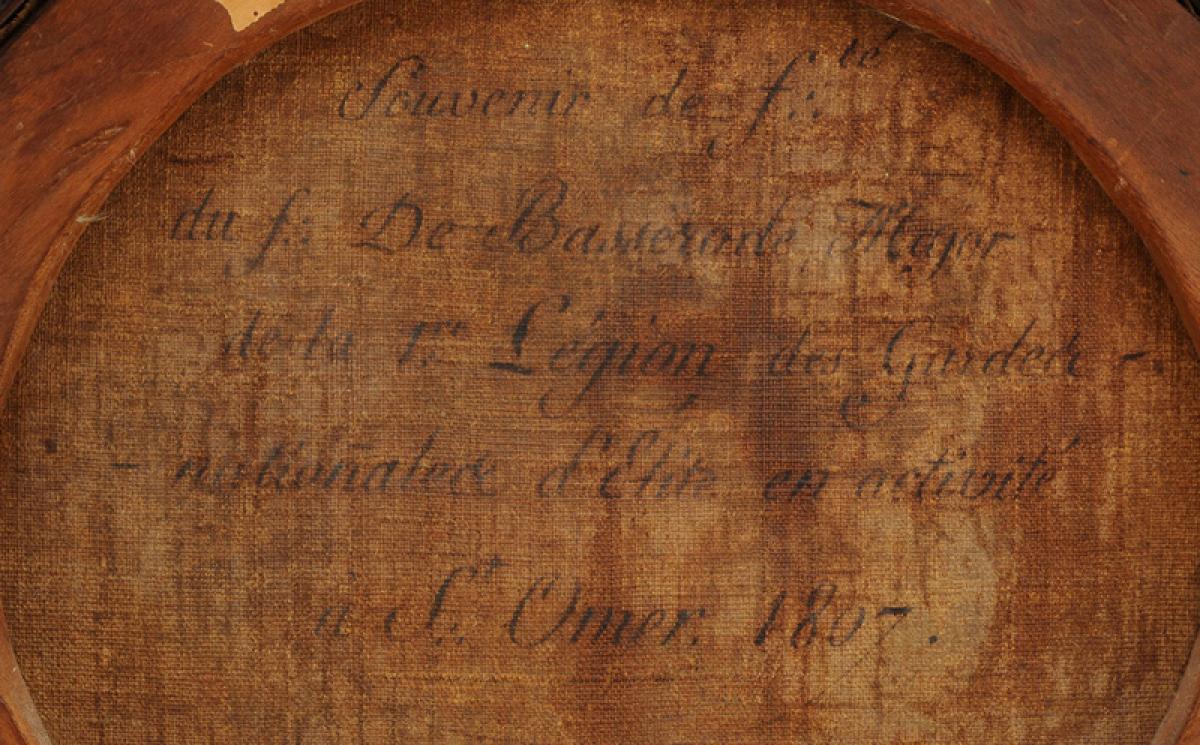 Souvenir de f∴té
du f∴ De Basserode Major
de la 1re Légion des Gardes -
- nationales d'Elite en activité
à St. Omer. 1807.